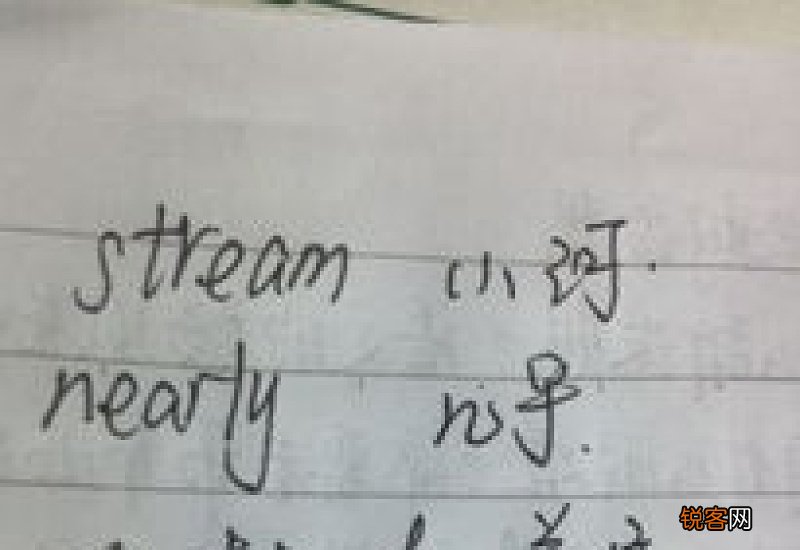 stream 小河.
nearly 几乎.
锐客网